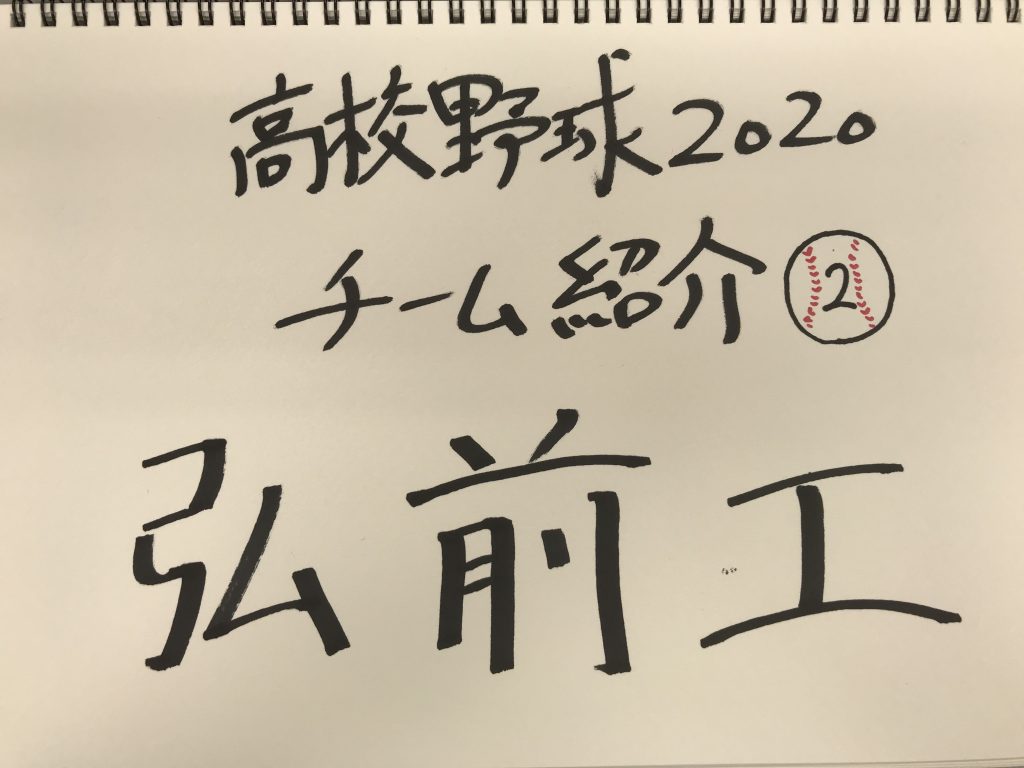 高校野球2020
チーム紹介②
弘前工